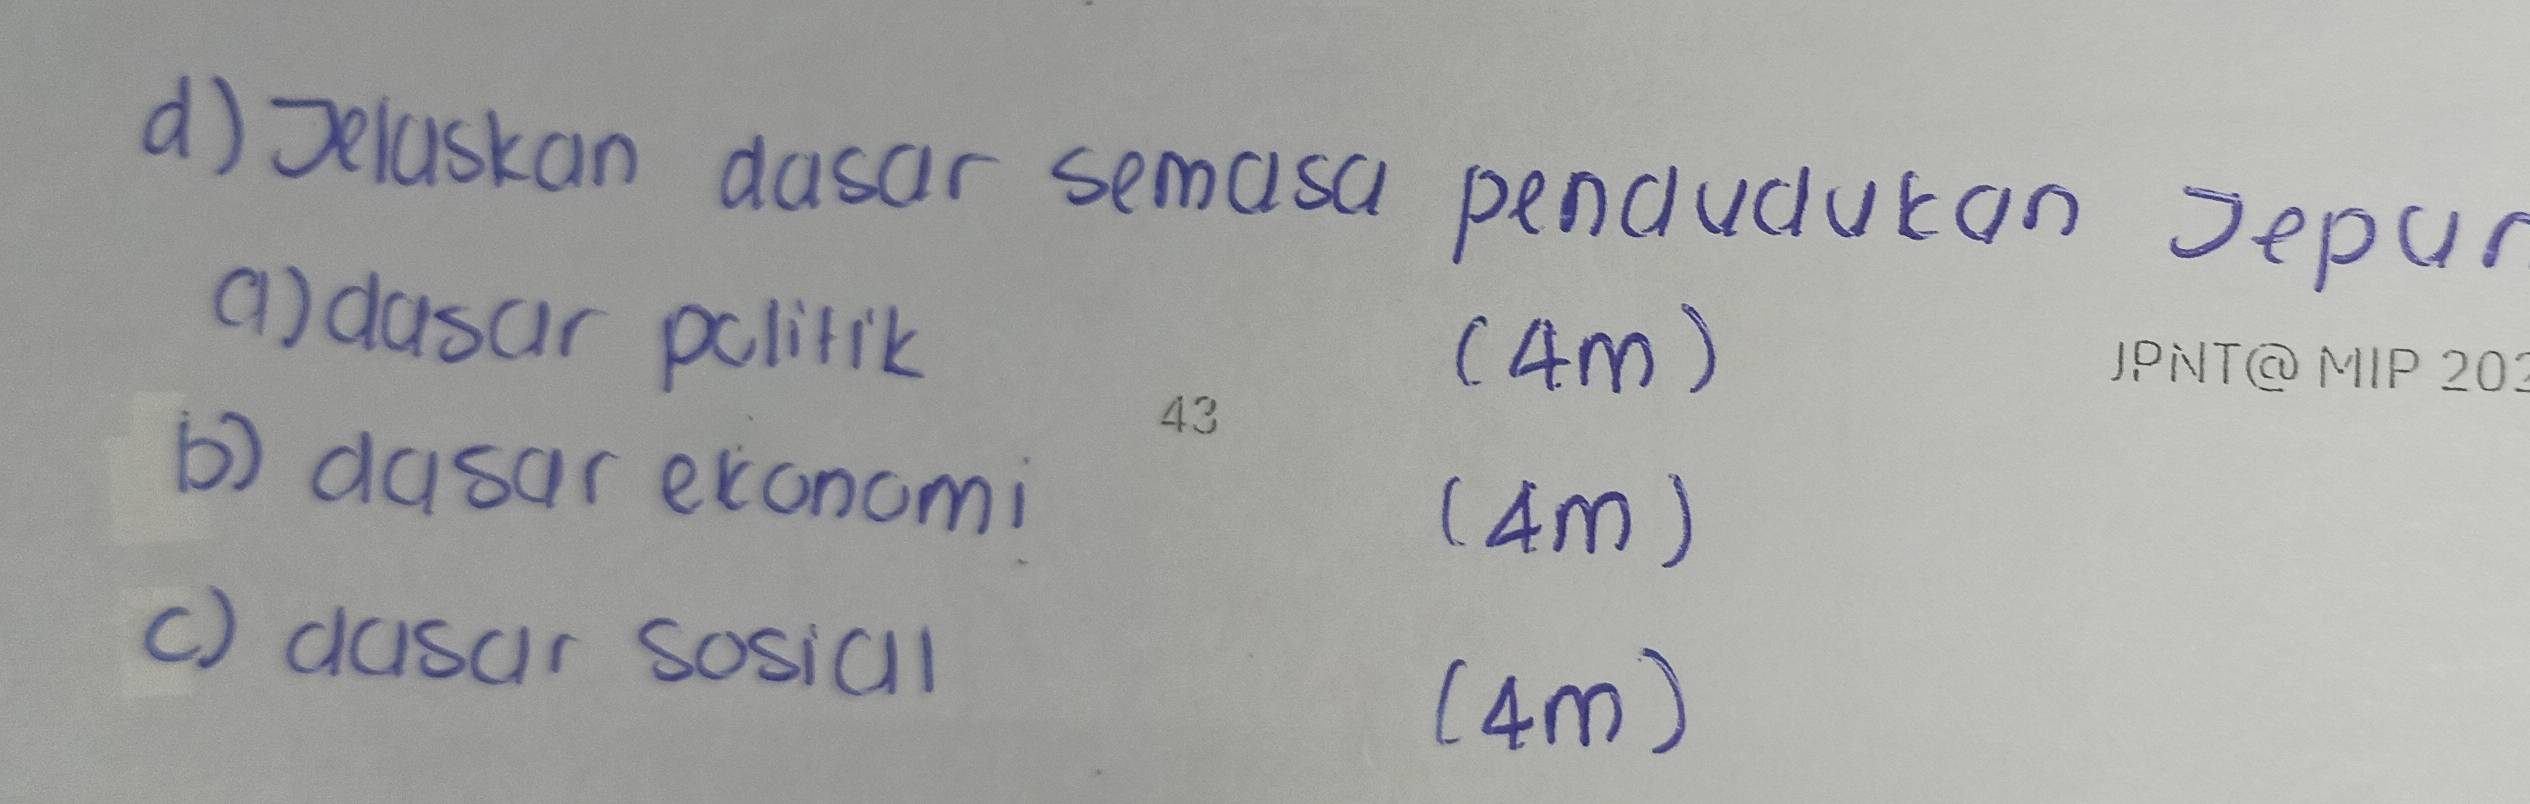 d) Jelaskan dasar semasa pendudukan Jepun
a) dasar politik (4m)
JPNT@ MIP 202
43
b) dasar ekonomi (4m)
c) dasar sosial (4m)